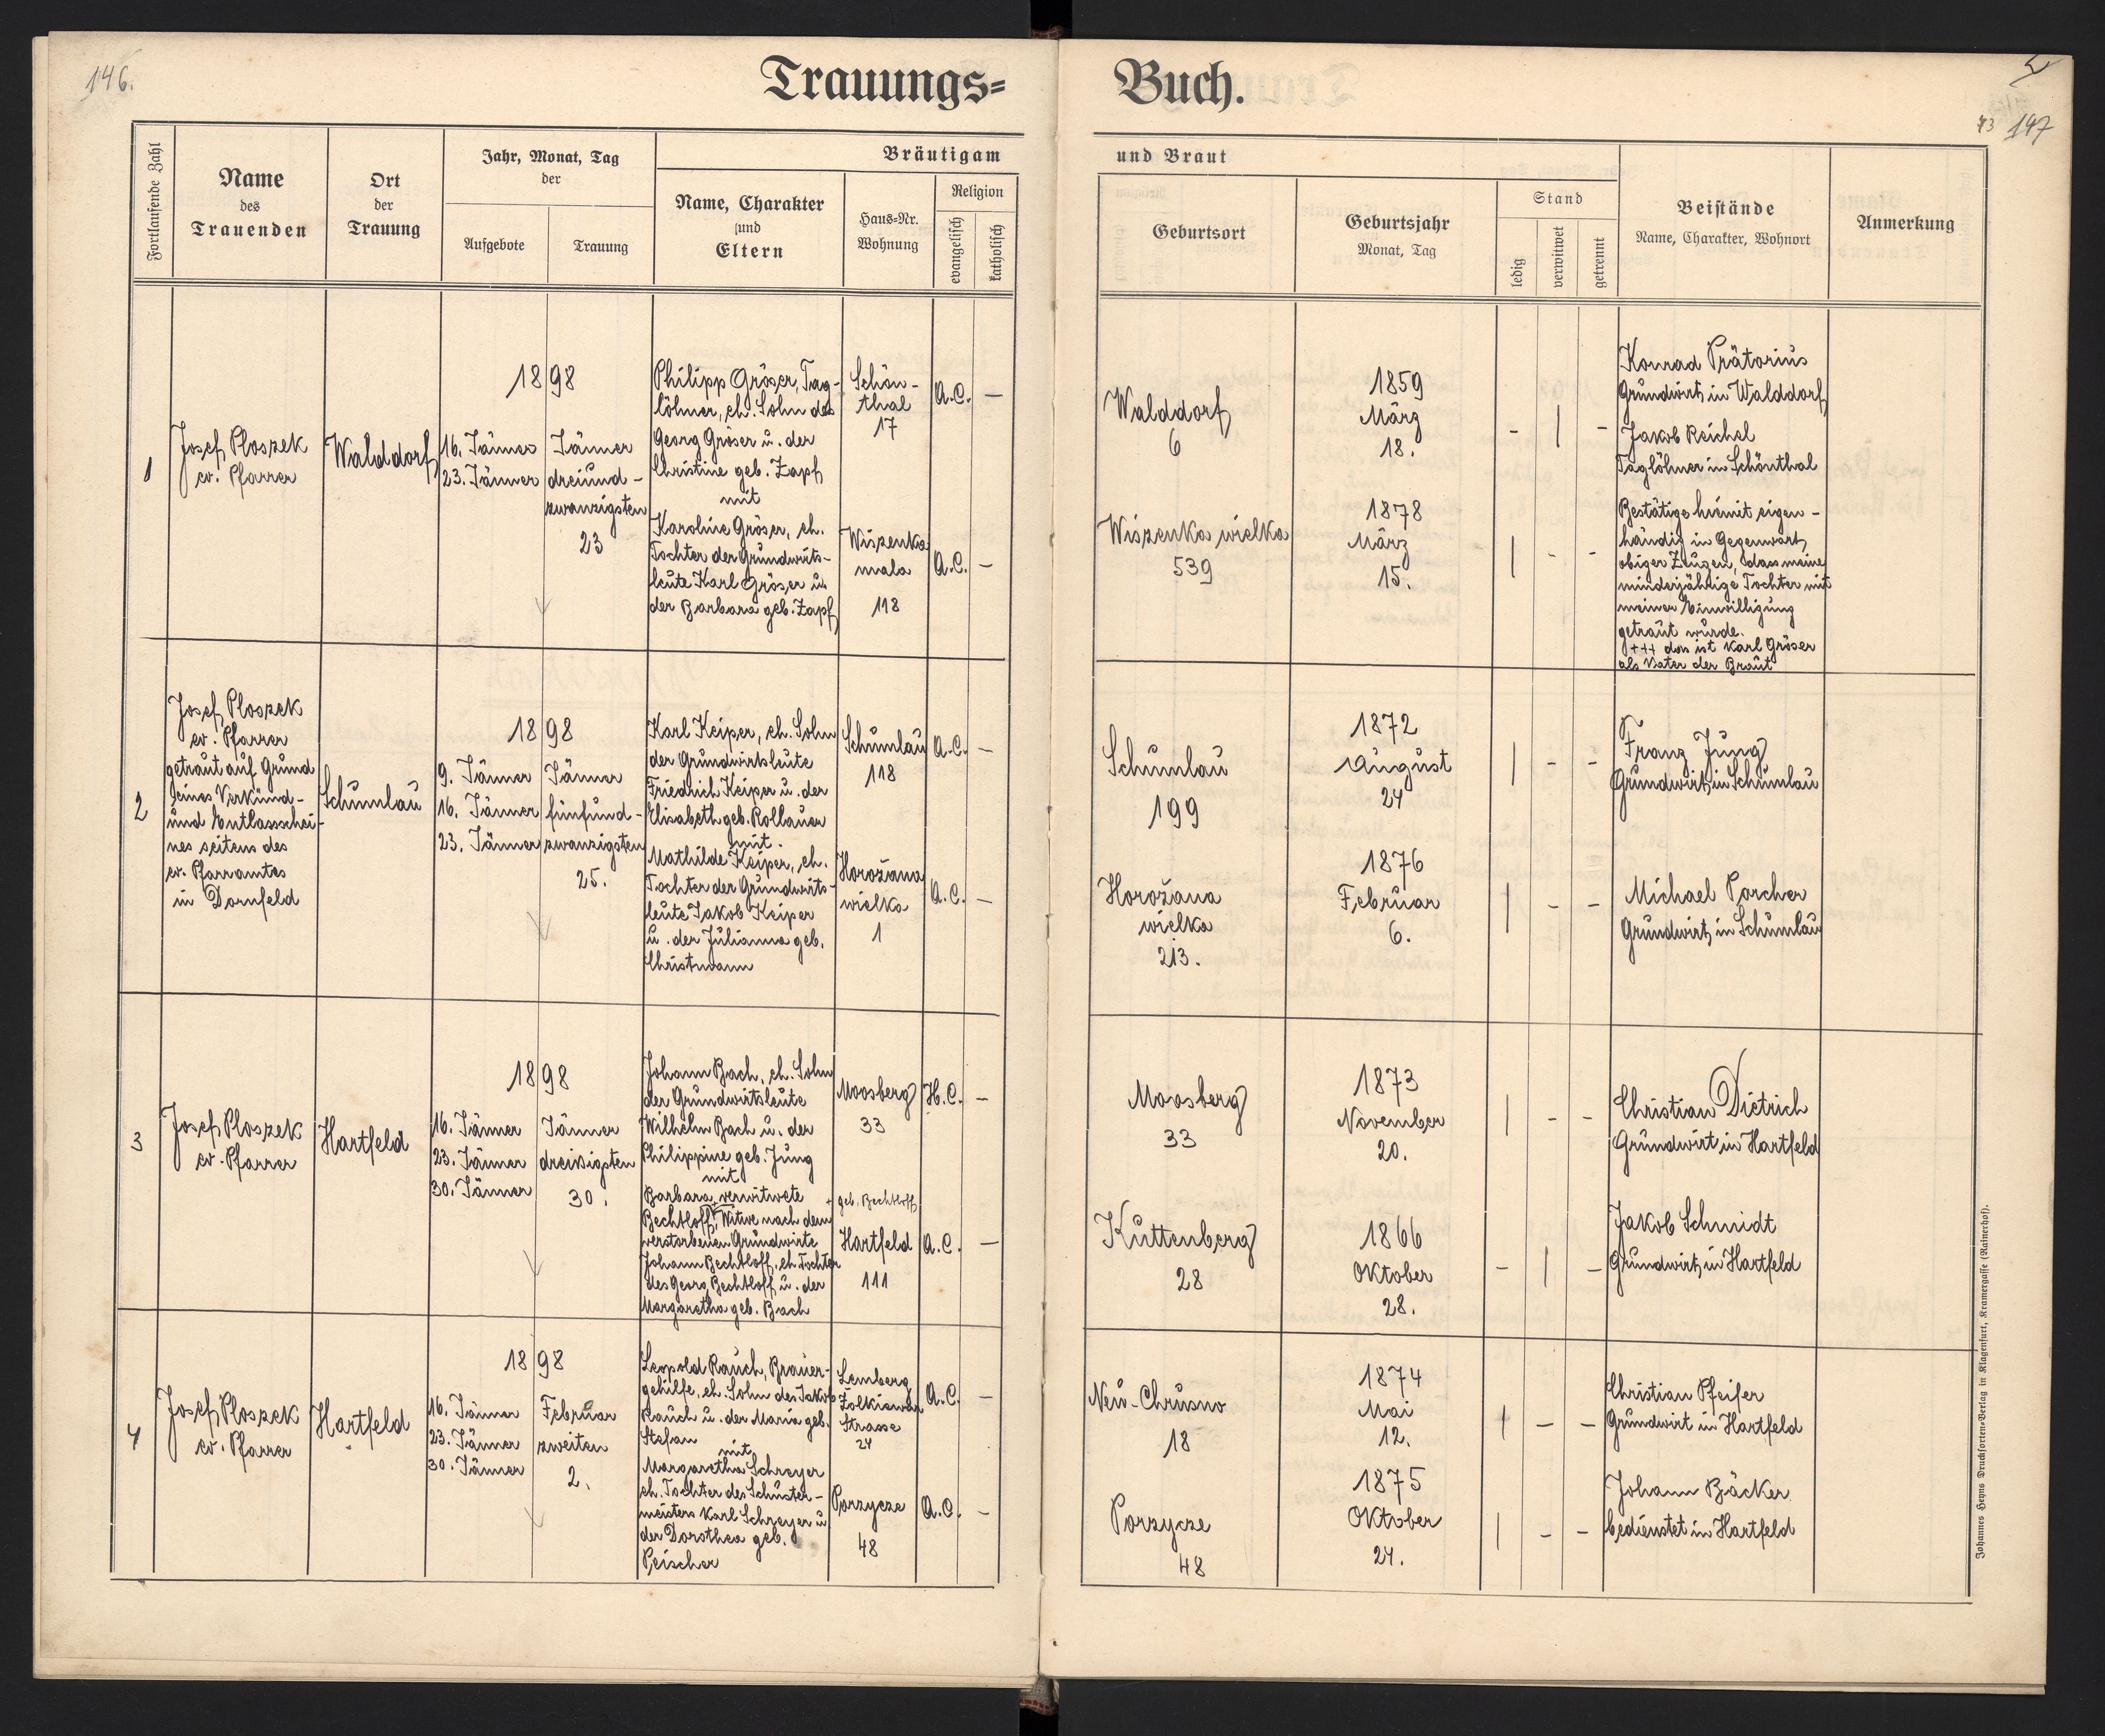 146.
Trauungs=
Buch.
43 147
Fortlaufende Zahl
Name
des
Trauenden
Ort
der
Trauung
Jahr, Monat, Tag
der
Aufgebote
Trauung
Bräutigam
Name, Charakter
und
Eltern
Haus=Nr.
Wohnung
Religion
evangelisch
katholisch
und Braut
Geburtsort
Geburtsjahr
Monat, Tag
Stand
ledig
verwitwet
getrennt
Beistände
Name, Charakter, Wohnort
Anmerkung
1
Josef Ploszek
ev. Pfarrer
Walddorf
1898
16. Jänner
23. Jänner
Jänner
dreiund-
zwanzigsten
23
Philipp Gröser, Tag-
löhner, eh. Sohn des
Georg Gröser u. der
Christine geb. Zapf
mit
Karoline Gröser, eh.
Tochter der Grundwirts-
leute Karl Gröser u.
der Barbara geb. Zapf
Schön-
thal
17
Wiszenka
mala
118
A.C. –
A.C. –
Walddorf
6
Wiszenka wielka
539
1859
März
18.
1878
März
15.
- | -
| - -
Konrad Prätorius
Grundwirt in Walddorf
Jakob Reichel
Taglöhner in Schönthal
Bestätige hiemit eigen-
händig in Gegenwart
obiger Zeugen, dass meine
minderjährige Tochter mit
meiner Einwilligung
getraut wurde.
+++ das ist Karl Gröser
als Vater der Braut
2
Josef Ploszek
ev. Pfarrer
getraut auf Grund
eines Verkünd-
und Entlassschei-
nes seitens des
ev. Pfarramtes
in Dornfeld
Schumlau
1898
9. Jänner
16. Jänner
23. Jänner
Jänner
fünfund-
zwanzigsten
25.
Karl Keiper, eh. Sohn
der Grundwirtsleute
Friedrich Keiper u. der
Elisabeth geb. Rollauer
mit.
Mathilde Keiper, eh.
Tochter der Grundwirts-
leute Jakob Keiper
u. der Julianna geb.
Christmann
Schumlau
118
Horožana
wielka
1
A.C. –
A.C. –
Schumlau
199
Horožana
wielka
213.
1872
August
24
1876
Februar
6.
| - -
| - -
Franz Jung
Grundwirt in Schumlau
Michael Porcher
Grundwirt in Schumlau
3
Josef Ploszek
ev. Pfarrer
Hartfeld
1898
16. Jänner
23. Jänner
30. Jänner
Jänner
dreißigsten
30.
Johann Bach, eh. Sohn
der Grundwirtsleute
Wilhelm Bach u. der
Philippine geb. Jung
mit
Barbara verwitwete
Bechtloff, Witwe nach dem
verstorbenen Grundwirte
Johann Bechtloff, eh. Tochter
des Georg Bechtloff u. der
Margaretha geb. Bach
Moosberg
33
+ geb. Bechtloff
Hartfeld
111
H.C. –
A.C. –
Moosberg
33
Kuttenberg
28
1873
November
20.
1866
Oktober
28.
| - -
- | -
Christian Dietrich
Grundwirt in Hartfeld
Jakob Schmidt
Grundwirt in Hartfeld
4
Josef Ploszek
ev. Pfarrer
Hartfeld
1898
16. Jänner
23. Jänner
30. Jänner
Februar
zweiten
2.
Leopold Rauch, Brauer-
gehilfe, eh. Sohn des Jakob
Rauch u. der Maria geb.
Stefan
mit
Margaretha Schreyer
eh. Tochter des Schuster-
meisters Karl Schreyer u.
der Dorothea geb.
Peischer
Lemberg
Strasse
24
Porzycze
48
A.C. –
A.C. –
Neu-Chrusno
18
Porzycze
48
1874
Mai
12.
1875
Oktober
24.
| - -
| - -
Christian Pfeifer
Grundwirt in Hartfeld
Johann Bäcker
bedienstet in Hartfeld
Johannes Heyns Drucksorten=Verlag in Klagenfurt, Kramergasse (Rainerhof).